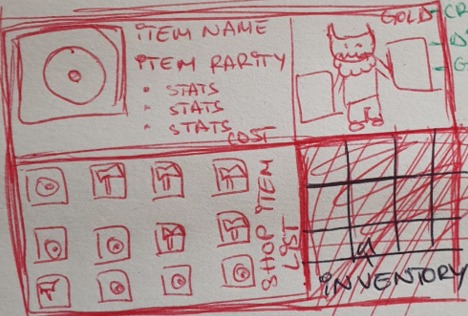 ITEM NAME
ITEM RARITY
• STATS
• STATS
• STATS
COST
GOLD
SHOP ITEM
LIST
INVENTORY